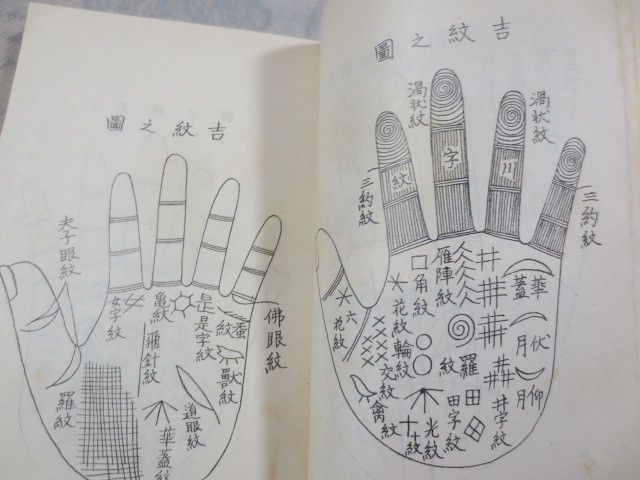 吉紋之圖
渦狀紋
渦狀紋
川字紋
三約紋
三約紋
華蓋
伏月
仰月
井字紋
雁陣紋
羅紋
田字紋
角紋
輪紋
光紋
十紋
花紋
六花紋
交紋
禽紋
吉紋之圖
佛眼紋
蚕紋
獸紋
是是字紋
道眼紋
龜紋
飛針紋
華蓋紋
女字紋
夫子眼紋
羅紋